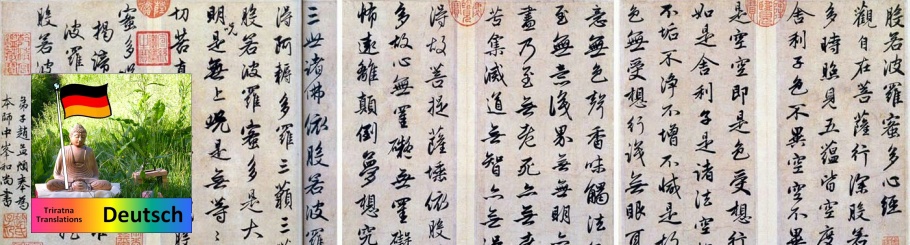 般若波羅蜜多心經
觀自在菩薩行深般若
多時照見五蘊皆空度
舍利子色不異空空不
是空即是色受想行
如是舍利子是諸法空
不垢不淨不增不減是故
色無受想行識無眼
意無色聲香味觸法
至無意識界無無明
盡乃至無老死亦無
苦集滅道無智亦無
得故菩提薩埵依般
多故心無罣礙無罣礙
怖遠離顛倒夢想究
三世諸佛依般若波羅
得阿耨多羅三藐三
般若波羅蜜多是大
明咒是無上咒是無等
切苦真
蜜多
揭諦
波羅
般若波
弟子趙孟頫奉為
本師中峯和尚書
Triratna
Translations
Deutsch